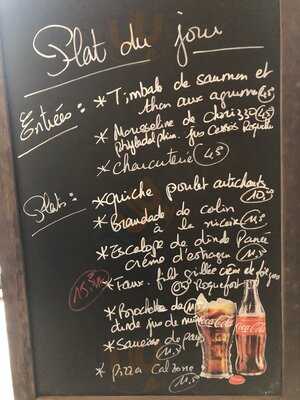 Plat du jour
Entrées :
* Timbale de saumon et
thon aux agrumes 4,5
* Mousseline de chorizo 4,5
phyladelphia. jus cassis Roquette
* Charcuterie 4,5
Plats :
* quiche poulet artichauts
10,50
* Brandade de colin
à la niçoise 11,5
* Escalope de dinde Panée
crème d'estragon 11,5
15,5
* Faux. filet grillée crème de
Roquefort
* Brochette de
dinde jus de 11,5
* Saucisse de pays
11,5
* Pizza Calzone
11,50
Coca-Cola
Coca-Cola